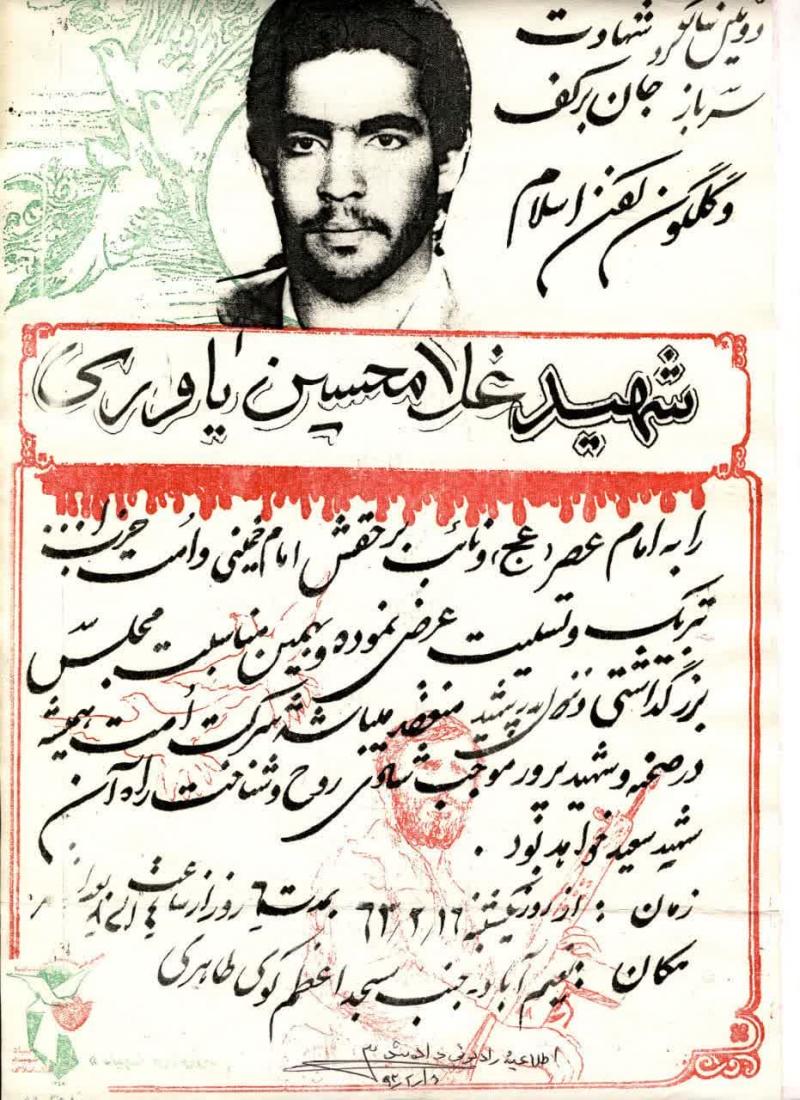 دومین سالگرد شهادت
سرباز جان برکف
و گلگون کفن اسلام
شهید غلامحسین یاوری
را به امام عصر (عج) و نائب برحقش امام خمینی و اُمت حزب ا...
تبریک و تسلیت عرض نموده و بهمین مناسبت مجلس
بزرگداشتی در منزل پدر شهید منعقد میباشد شرکت اُمت همیشه
در صحنه و شهیدپرور موجب شادی روح و شناخت راه آن
شهید سعید خواهد بود .
زمان : از روز یکشنبه ۶۳/۲/۱۶ بمدت ۶ روز از ساعت
مکان : نعیم آباد - جنب مسجد اعظم کوی طاهری
اطلاعیه